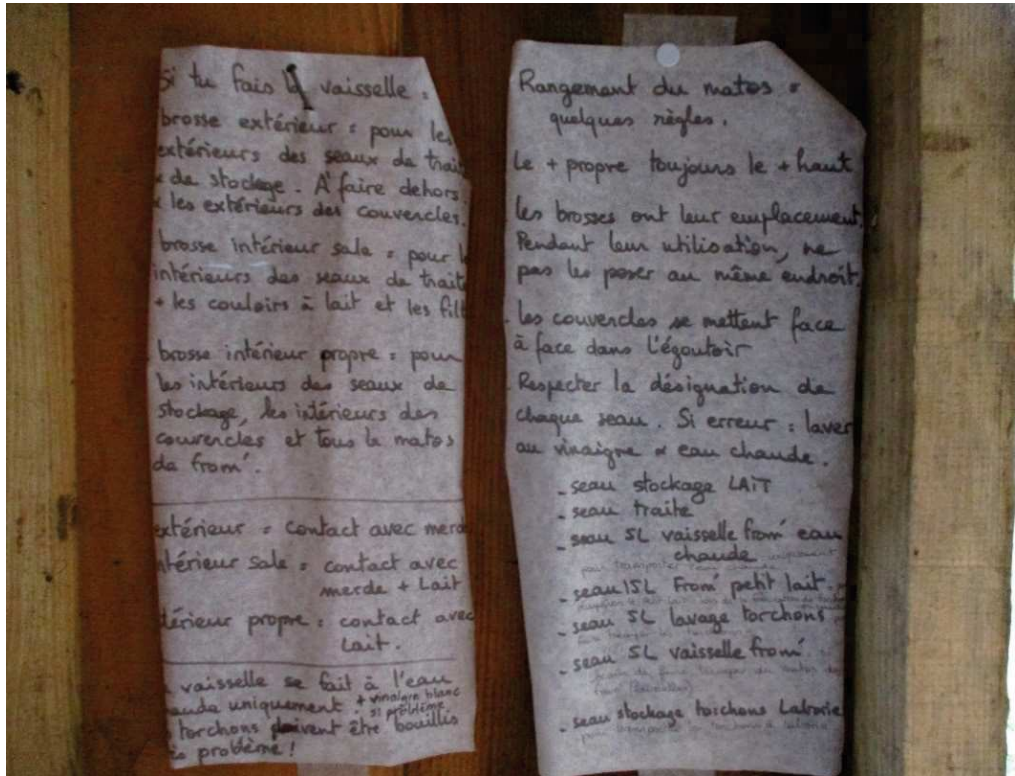 Si tu fais la vaisselle :
brosse extérieur : pour les
extérieurs des seaux de trait
x de stockage. A faire dehors.
x les extérieurs des couvercles.
brosse intérieur sale : pour l
intérieurs des seaux de traite
+ les couloirs à lait et les filt
brosse intérieur propre : pour
les intérieurs des seaux de
stockage, les intérieurs des
couvercles et tous le matos
de from'.
extérieur = contact avec merde
ntérieur sale = contact avec
merde + Lait
térieur propre = contact avec
Lait.
vaisselle se fait à l'eau
aude uniquement + vinaigre blanc
si problème
torchons doivent être bouillis
problème !
Rangement du matos =
quelques règles.
Le + propre toujours le + haut
Les brosses ont leur emplacement.
Pendant leur utilisation, ne
pas les poser au même endroit.
Les couvercles se mettent face
à face dans l'égoutoir
Respecter la désignation de
chaque seau. Si erreur : laver
au vinaigre x eau chaude.
- seau stockage LAiT
- seau traite
- seau 5L vaisselle from' eau
chaude
pour transporter l'eau chaude uniquement
- seau 15L From' petit lait.
- seau 5L lavage torchons
- seau 5L vaisselle from'.
- seau stockage torchons Laborie